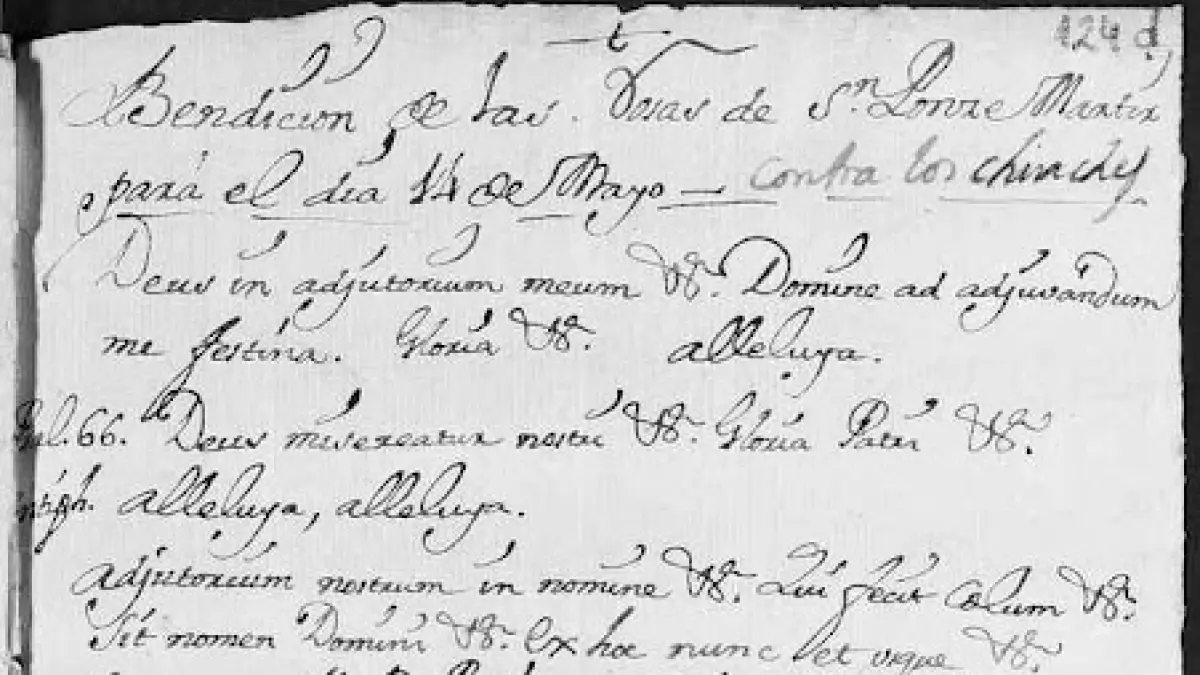 124 d
Bendicion de las Rosas de Sn. Ponze Martir
para el dia 14 de Mayo — contra los chinches
Deus in adjutorium meum &c. Domine ad adjuvandum
me festina. Gloria &c. alleluya.
Psal. 66. Deus misereatur nostri &c. Gloria Patri &c.
Antiph. alleluya, alleluya.
adjutorium nostrum in nomine &c. Qui fecit Cœlum &c.
Sit nomen Domini &c. Ex hoc nunc et usque &c.